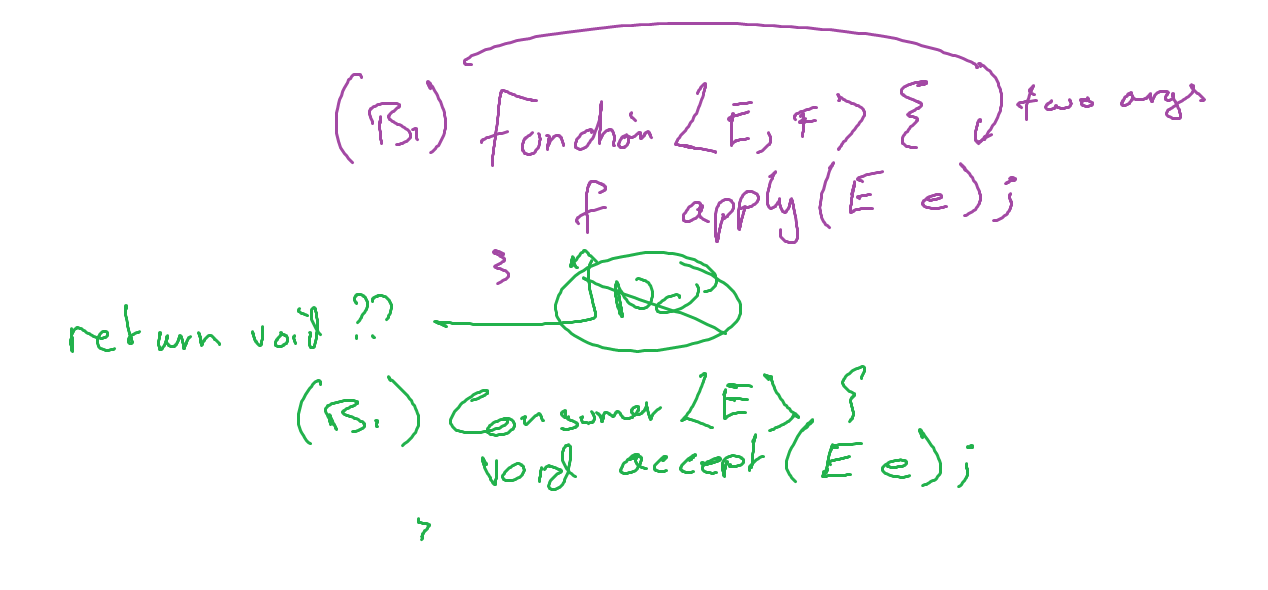 (Bi) Function <E, F> { two args
F apply(E e);
}
No
return void ??
(Bi) Consumer <E> {
void accept(E e);
}